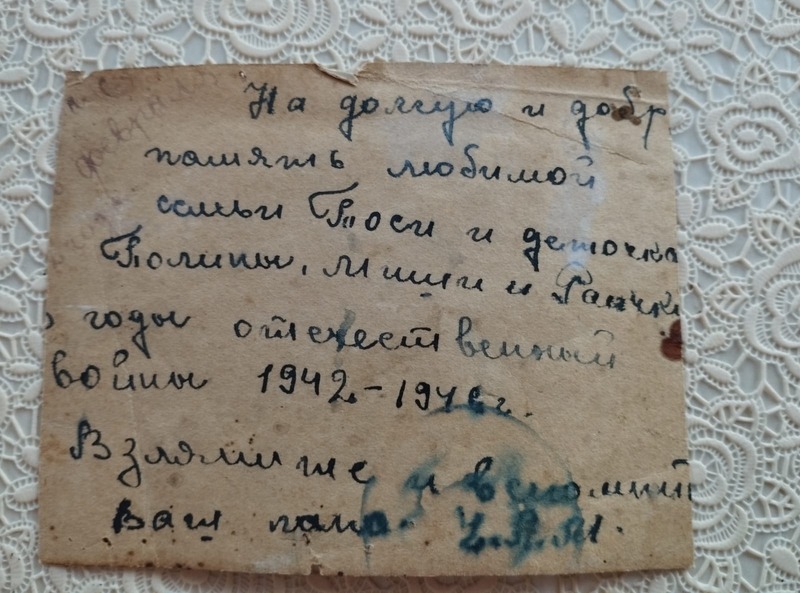 На долгую и добр
память любимой
семьи Тоси и деточка
Полины, Миши и Раички
годы отечественный
войны 1942-194 г.
Взгляните и вспомнит
Ваш папа.